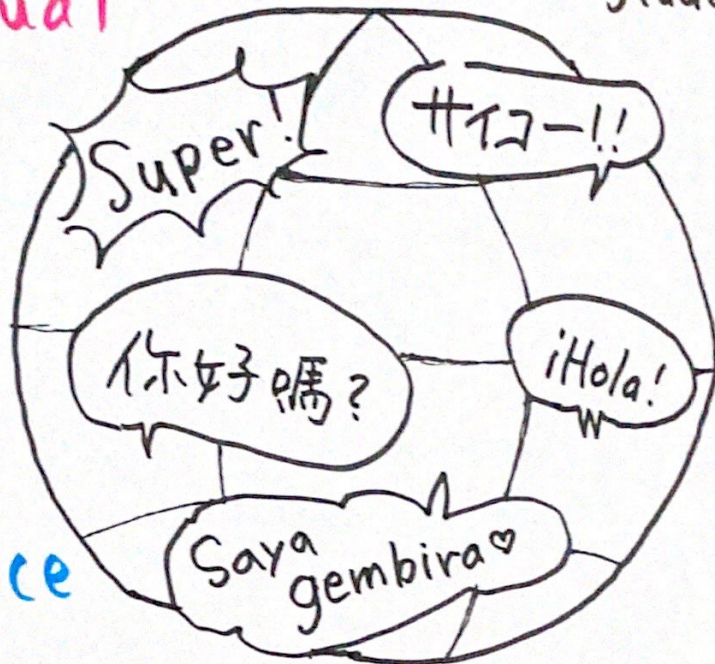 Super!
サイコー!!
你好嗎?
¡Hola!
Saya
gembira♡